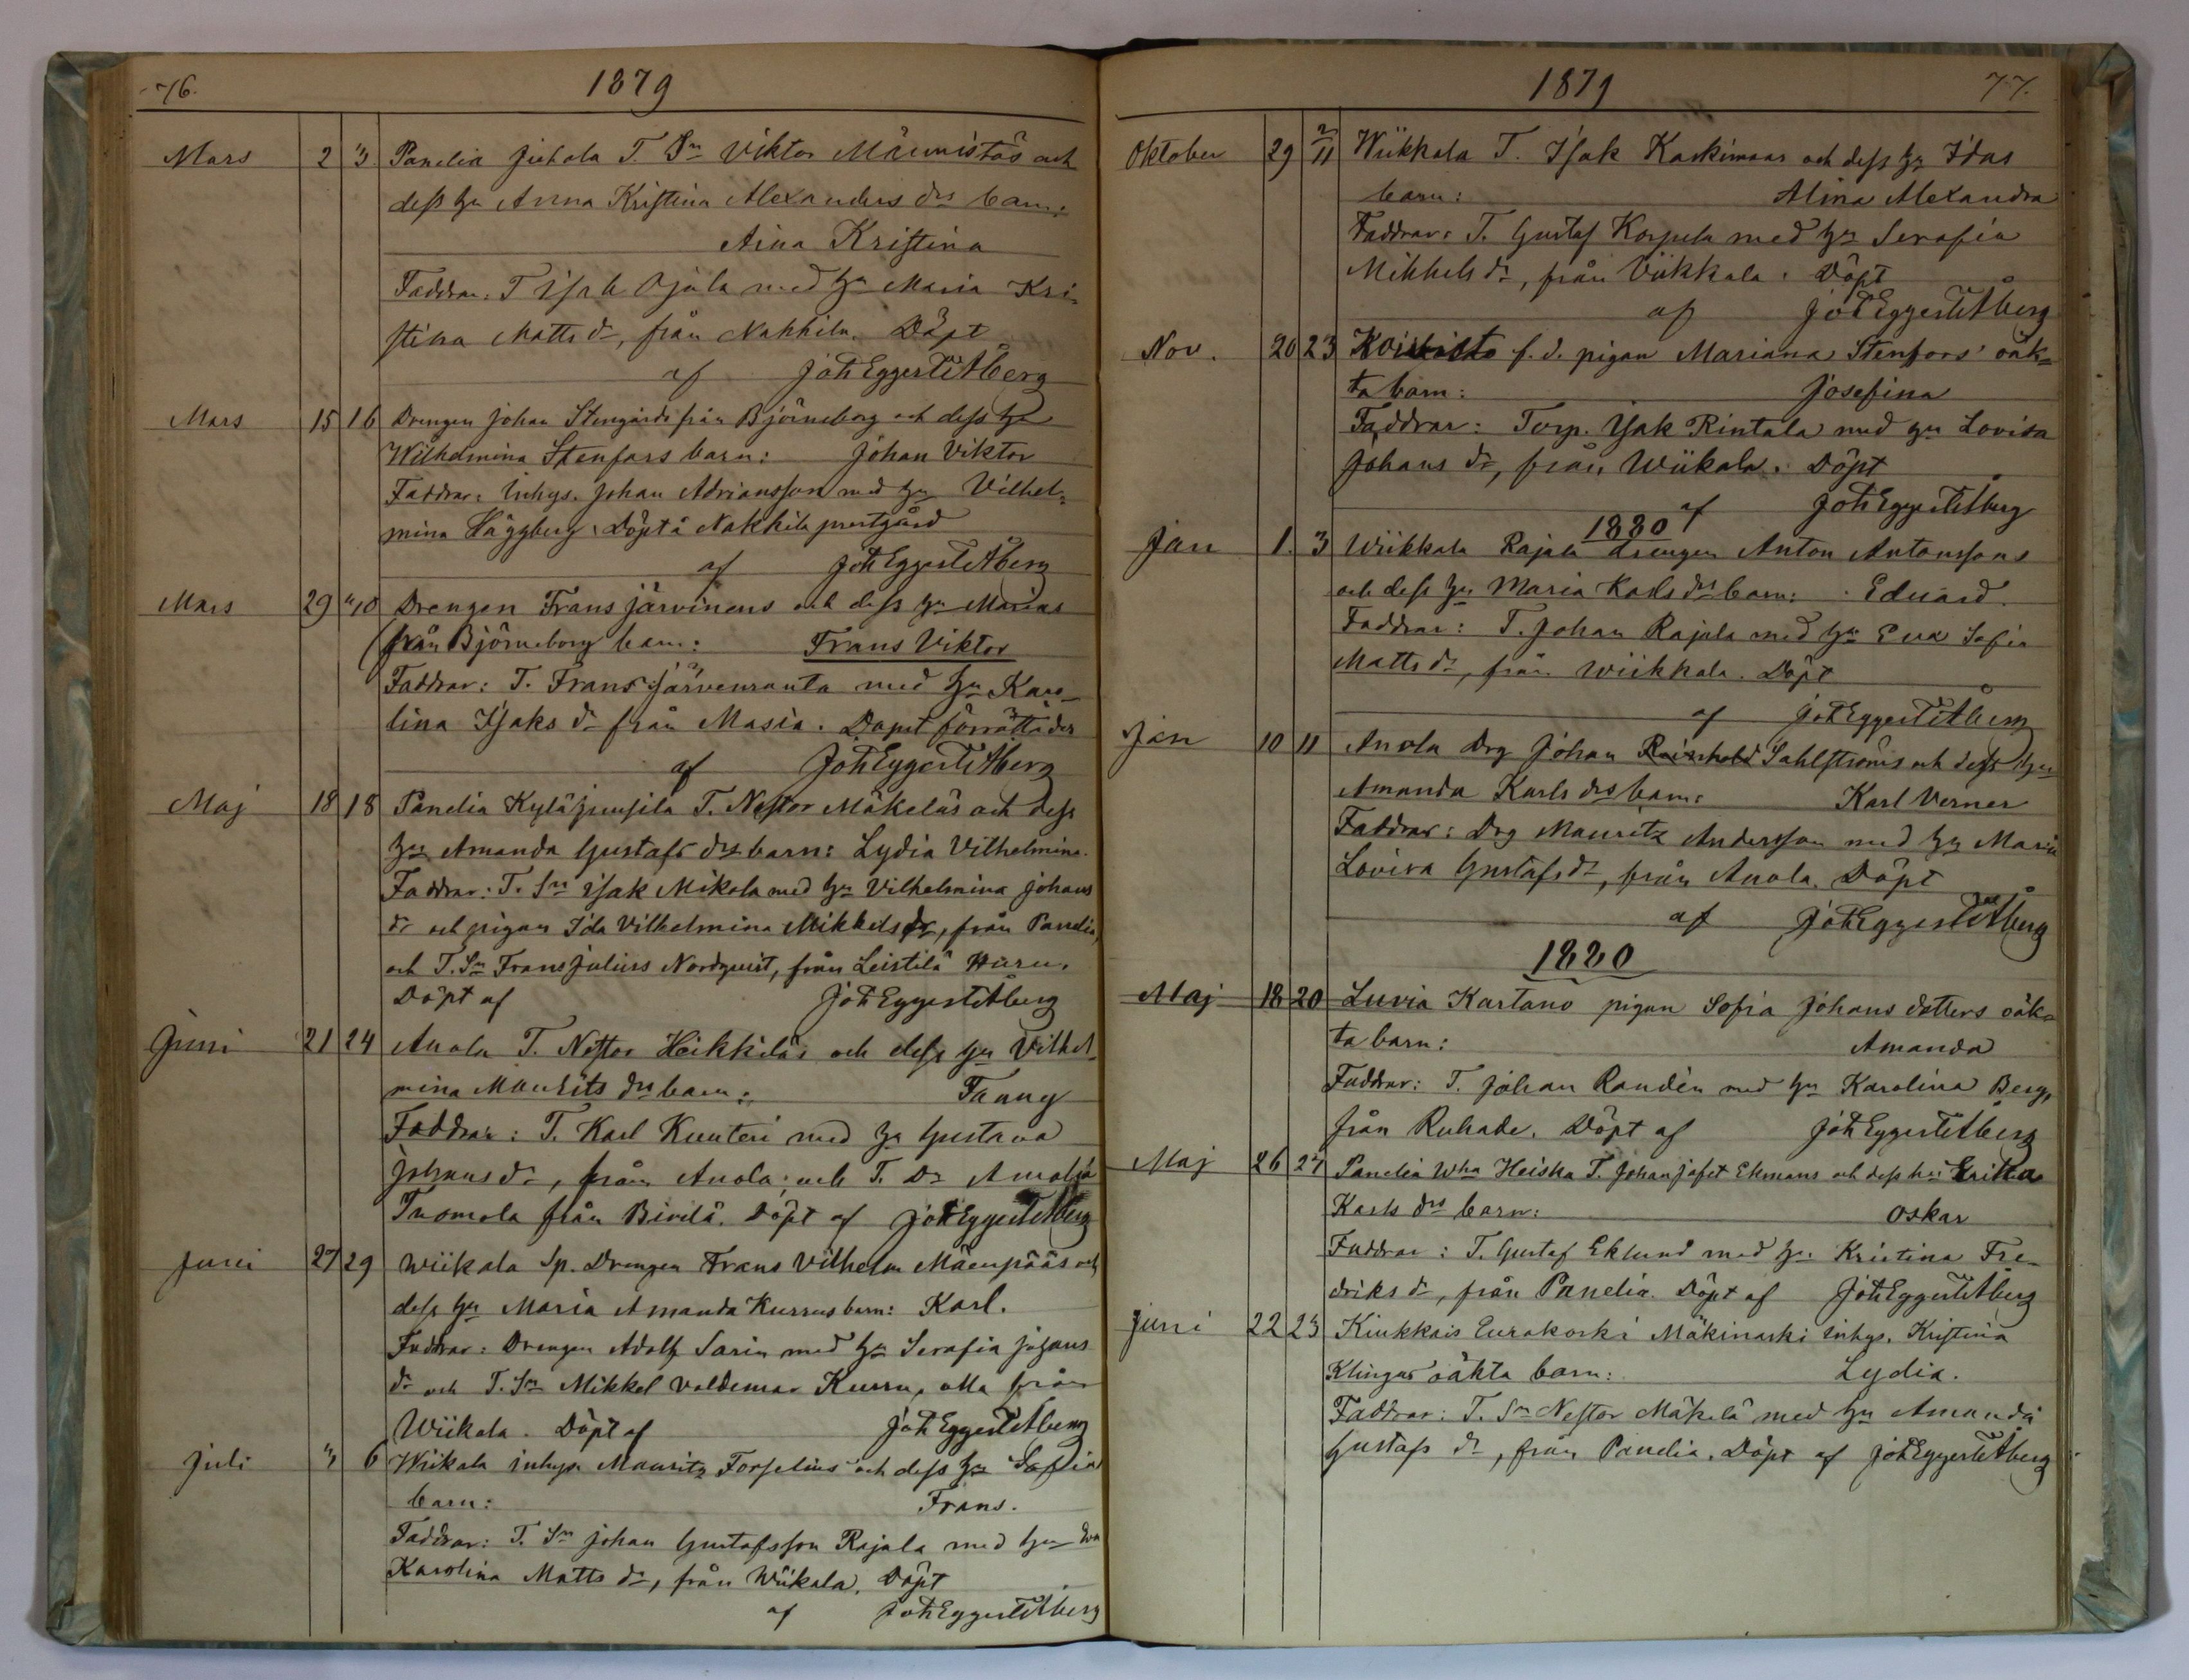 76.
1879
Mars 2 3. Panelia Juhola T. Sn Viktor Männistös och
dess hu Anna Kristina Alexanders drs barn:
Aina Kristina
Faddrar: T Isak Ojala med hu Maria Kri-
stina Matts dr, från Nakkila. Döpt
af Joh Eggert Liljeberg
Mars 15 16 Drengen Johan Stengårds från Björneborg och dess hu
Wilhelmina Stenfors barn: Johan Viktor
Faddrar: Inhys. Johan Adriansson med hu Vilhel-
mina Häggberg. Döpt å Nakkila prestgård
af
Mars 29 "10 Drengen Frans Järvinens och dess hu Marias
(från Björneborg barn: Frans Viktor
Faddrar: T. Frans Järvenranta med hu Karo-
lina Isaks dr från Masia. Dopet förrättades
af
Maj 18 18 Panelia Kyläjuusila T. Nestor Mäkeläs och dess
hu Amanda Gustafs drs barn: Lydia Vilhelmina.
Faddrar: T. Sn Isak Mikola med hu Vilhelmina Johans
dr och pigan Ida Vilhelmina Mikkels dr, från Panelia,
och T. Sn Frans Julius Nordqvist, från Leistilä
Döpt af
Juni 21 24 Anola T. Nestor Heikkiläs och dess hu Vilhel-
mina Maurits drs barn: Fanny
Faddrar: T. Karl Kunteri med hu Gustava
Johans dr, från Anola; och T. Dr Amalia
Tuomola från . Döpt af
Juni 27 29 Wiikala Sp. Drengen Frans Vilhelm Mäenpääs och
dess hu Maria Amanda Kurrus barn: Karl.
Faddrar: Drengen Adolf Sarin med hu Serafia Johans
dr och T. Sn Mikkel Valdemar Kurru, alla från
Wiikala. Döpt af
Juli " 6 Wiikala inhys. Mauritz Forselius och dess hu Sofia
barn: Frans.
Faddrar: T. Sn Johan Gustafsson Rajala med hu Eva
Karolina Matts dr, från Wiikala. Döpt
af
1879
77.
Oktober 29 2/11 Wiikkala T. Isak Kaskimaas och dess hu Idas
barn: Alina Alexandra
Faddrar: T. Gustaf Korpela med hu Serafia
Mikkels dr, från Viikkala. Döpt
af
Nov. 20 23 Koivisto f. d. pigan Mariana Stenfors' oäk-
ta barn: Josefina
Faddrar: Torp. Isak Rintala med hu Lovisa
Johans dr, från Wiikala. Döpt
af
1880
Jan 1. 3 Wiikkala Rajala drengen Anton Antonssons
och dess hu Maria Karls drs barn: Eduard.
Faddrar: T. Johan Rajala med hu Eva Sofia
Matts dr, från Wiikkala. Döpt
af
Jan 10 11 Anola Drg Johan Reinhold Sahlströms och dess hu
Amanda Karls drs barn: Karl Verner
Faddrar: Drg Mauritz Andersson med hu Maria
Lovisa Gustafs dr, från Anola. Döpt
af
1880
Maj 18 20 Luvia Kartano pigan Sofia Johans dotters oäk-
ta barn: Amanda
Faddrar: T. Johan Randén med hu Karolina Berg,
från Ruhade. Döpt af
Maj 26 27 Panelia Heiska T. Johan Jafet Ekmans och dess hu Erika
Karls drs barn: Oskar
Faddrar: T. Gustaf Eklund med hu Kristina Fre-
driks dr, från Panelia. Döpt af
Juni 22 23 Kiukkais Eurakoski Mäkinaski inhys. Kristina
Klingas oäkta barn: Lydia.
Faddrar: T. Sn Nestor Mäkelä med hu Amanda
Gustafs dr, från Panelia. Döpt af